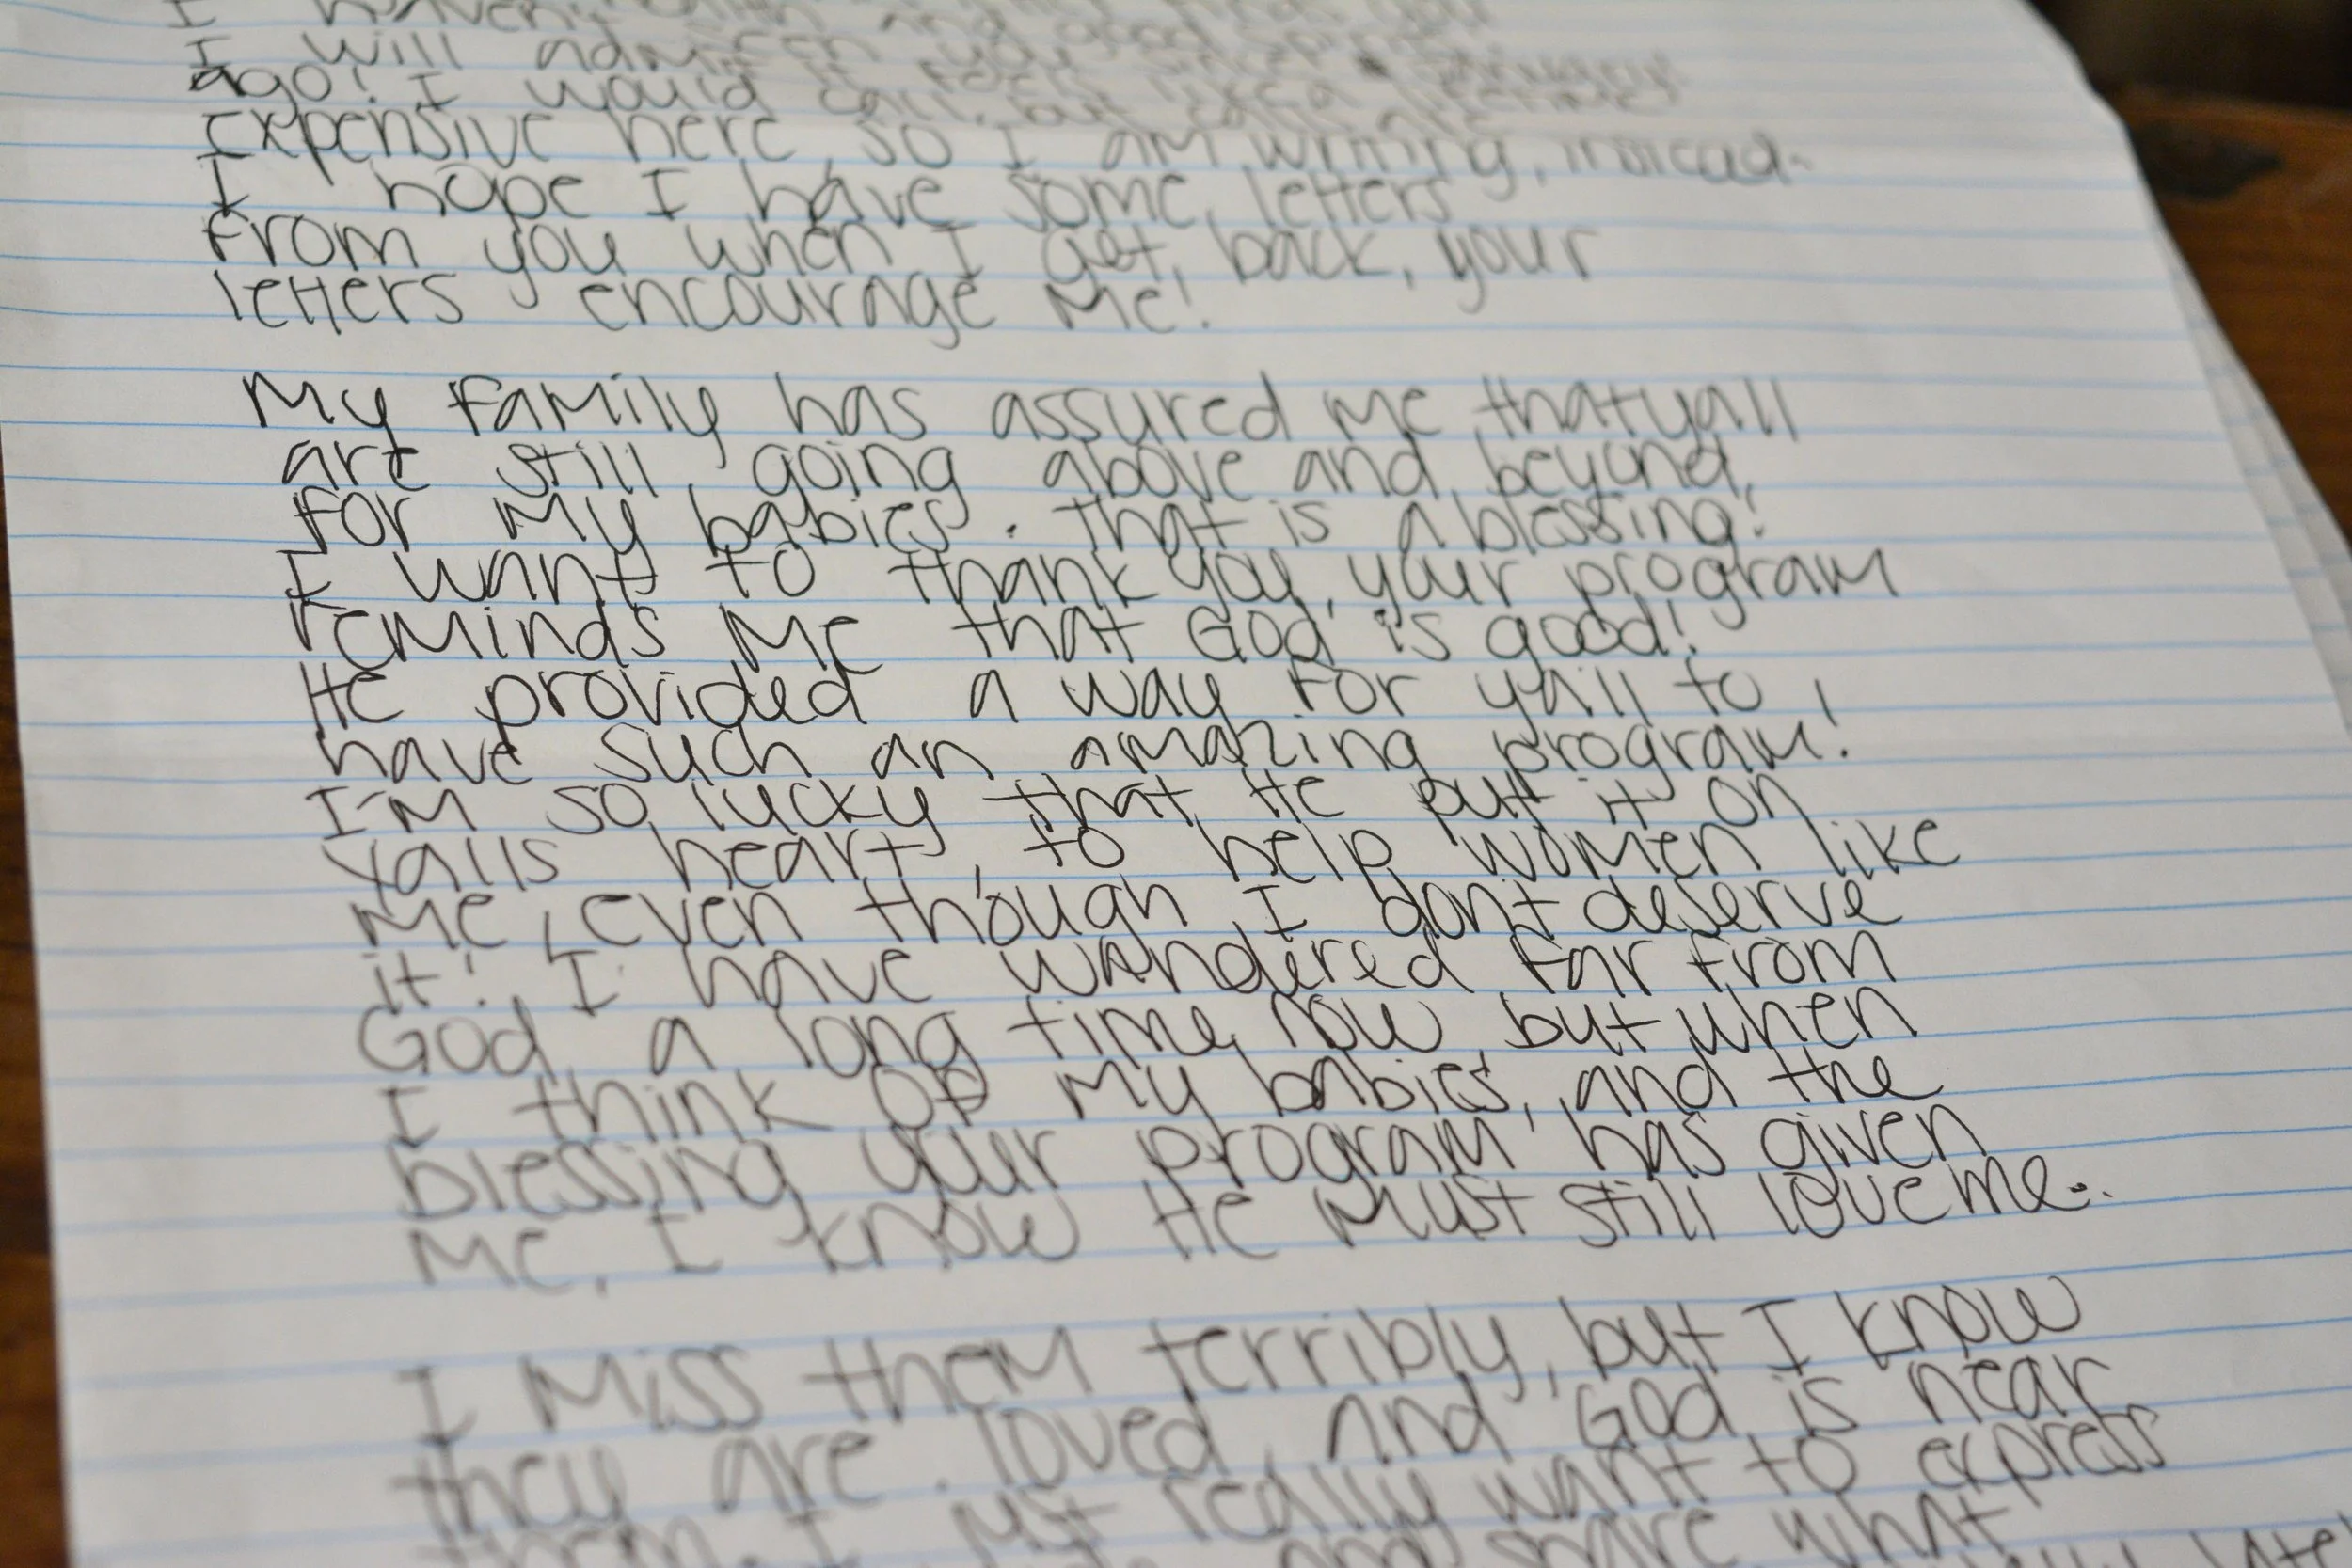 I haven't and good
I will admit
ago! I would call, but calls are
Expensive here, so I am writing, instead.
I hope I have some letters
from you when I get back, your
letters encourage me!
My family has assured me thatyall
are still going above and beyond
for my babies. That is a blessing!
I want to thank you, your program
reminds me that God is good!
He provided a way for yall to
have such an amazing program!
I'm so lucky that He put it on
yalls hearts, to help women like
me, even though I don't deserve
it! I have wandered far from
God a long time now but when
I think of my babies, and the
blessing your program has given
me, I know He must still love me..
I miss them terribly, but I know
they are loved, and God is near
them. I just really want to express
and share what